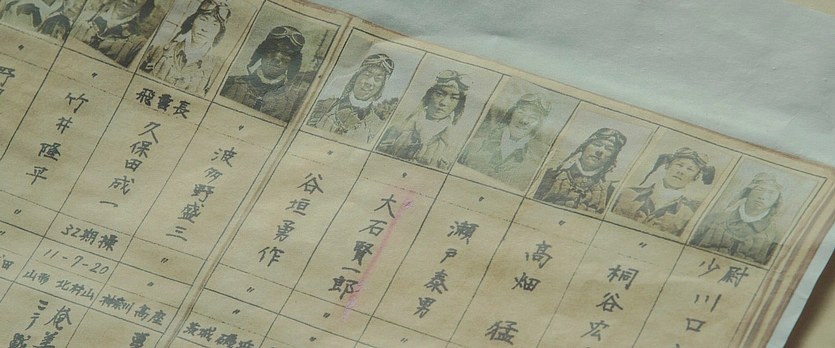 少尉
川口
〃
桐谷宏
〃
高畑 猛
〃
瀬戸泰男
〃
大石賢一郎
〃
谷垣勇作
波多野盛三
飛曹長
久保田成一
〃
竹井隆平
野
32期操
〃
〃
11-7-20
山形 北村山
神奈川 高座
茨城
〃
〃